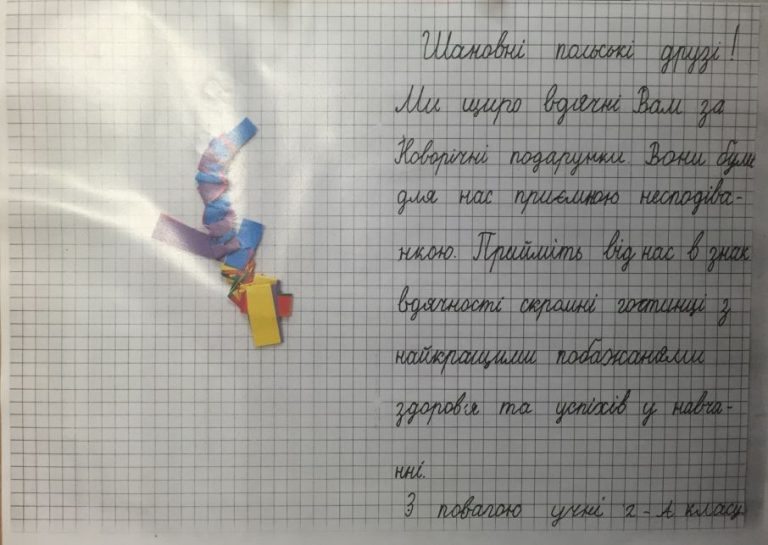 Шановні польські друзі!
Ми щиро вдячні Вам за
Новорічні подарунки. Вони були
для нас приємною несподіва-
нкою. Прийміть від нас в знак
вдячності скромні гостинці з
найкращими побажаннями
здоров'я та успіхів у навча-
нні.
З повагою учні 2-А класу